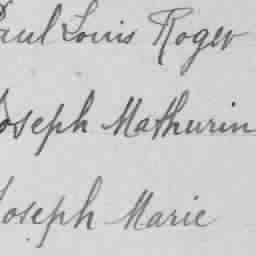 Paul Louis Roger
Joseph Mathurin
Joseph Marie